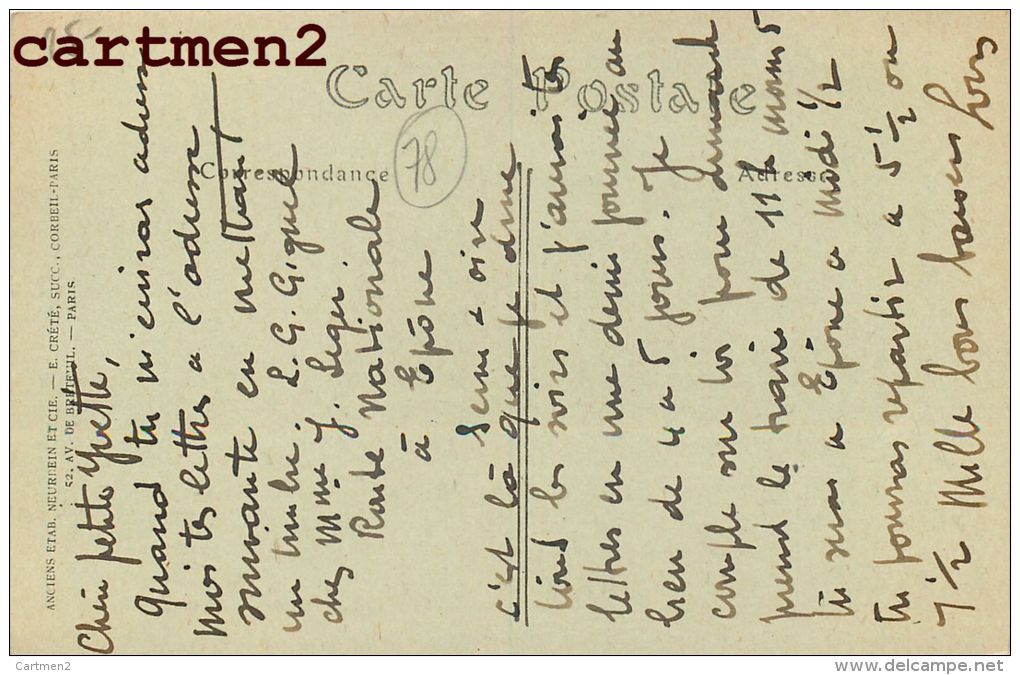 cartmen2
Carte Postale
Correspondance
Adresse
78
ANCIENS ETAB. NEURDEIN ET CIE. — E. CRÉTÉ, SUCC., CORBEIL-PARIS
52, AV. DE BRETEUIL. — PARIS
Chère petite Yvette,
Quand tu m'ecriras adresse
mois tes lettres a l'adresse
suivante en mettant
un timbre. L. G. Gigule
chez Mme J. Leger
Route Nationale
à Epône
Seine & oise
c'est là que je dine
tous les soirs et j'aurais tes
lettres en une demis journée au
lieu de 4 a 5 jours. Je
compte sur toi pour dimanche
prend le train de 11h moins 5
tu seras a Epone a midi 1/2
tu pourras repartir a 5 1/2 ou
7 1/2 Mille bons baisers
Cartmen2
http://www.delcampe.net